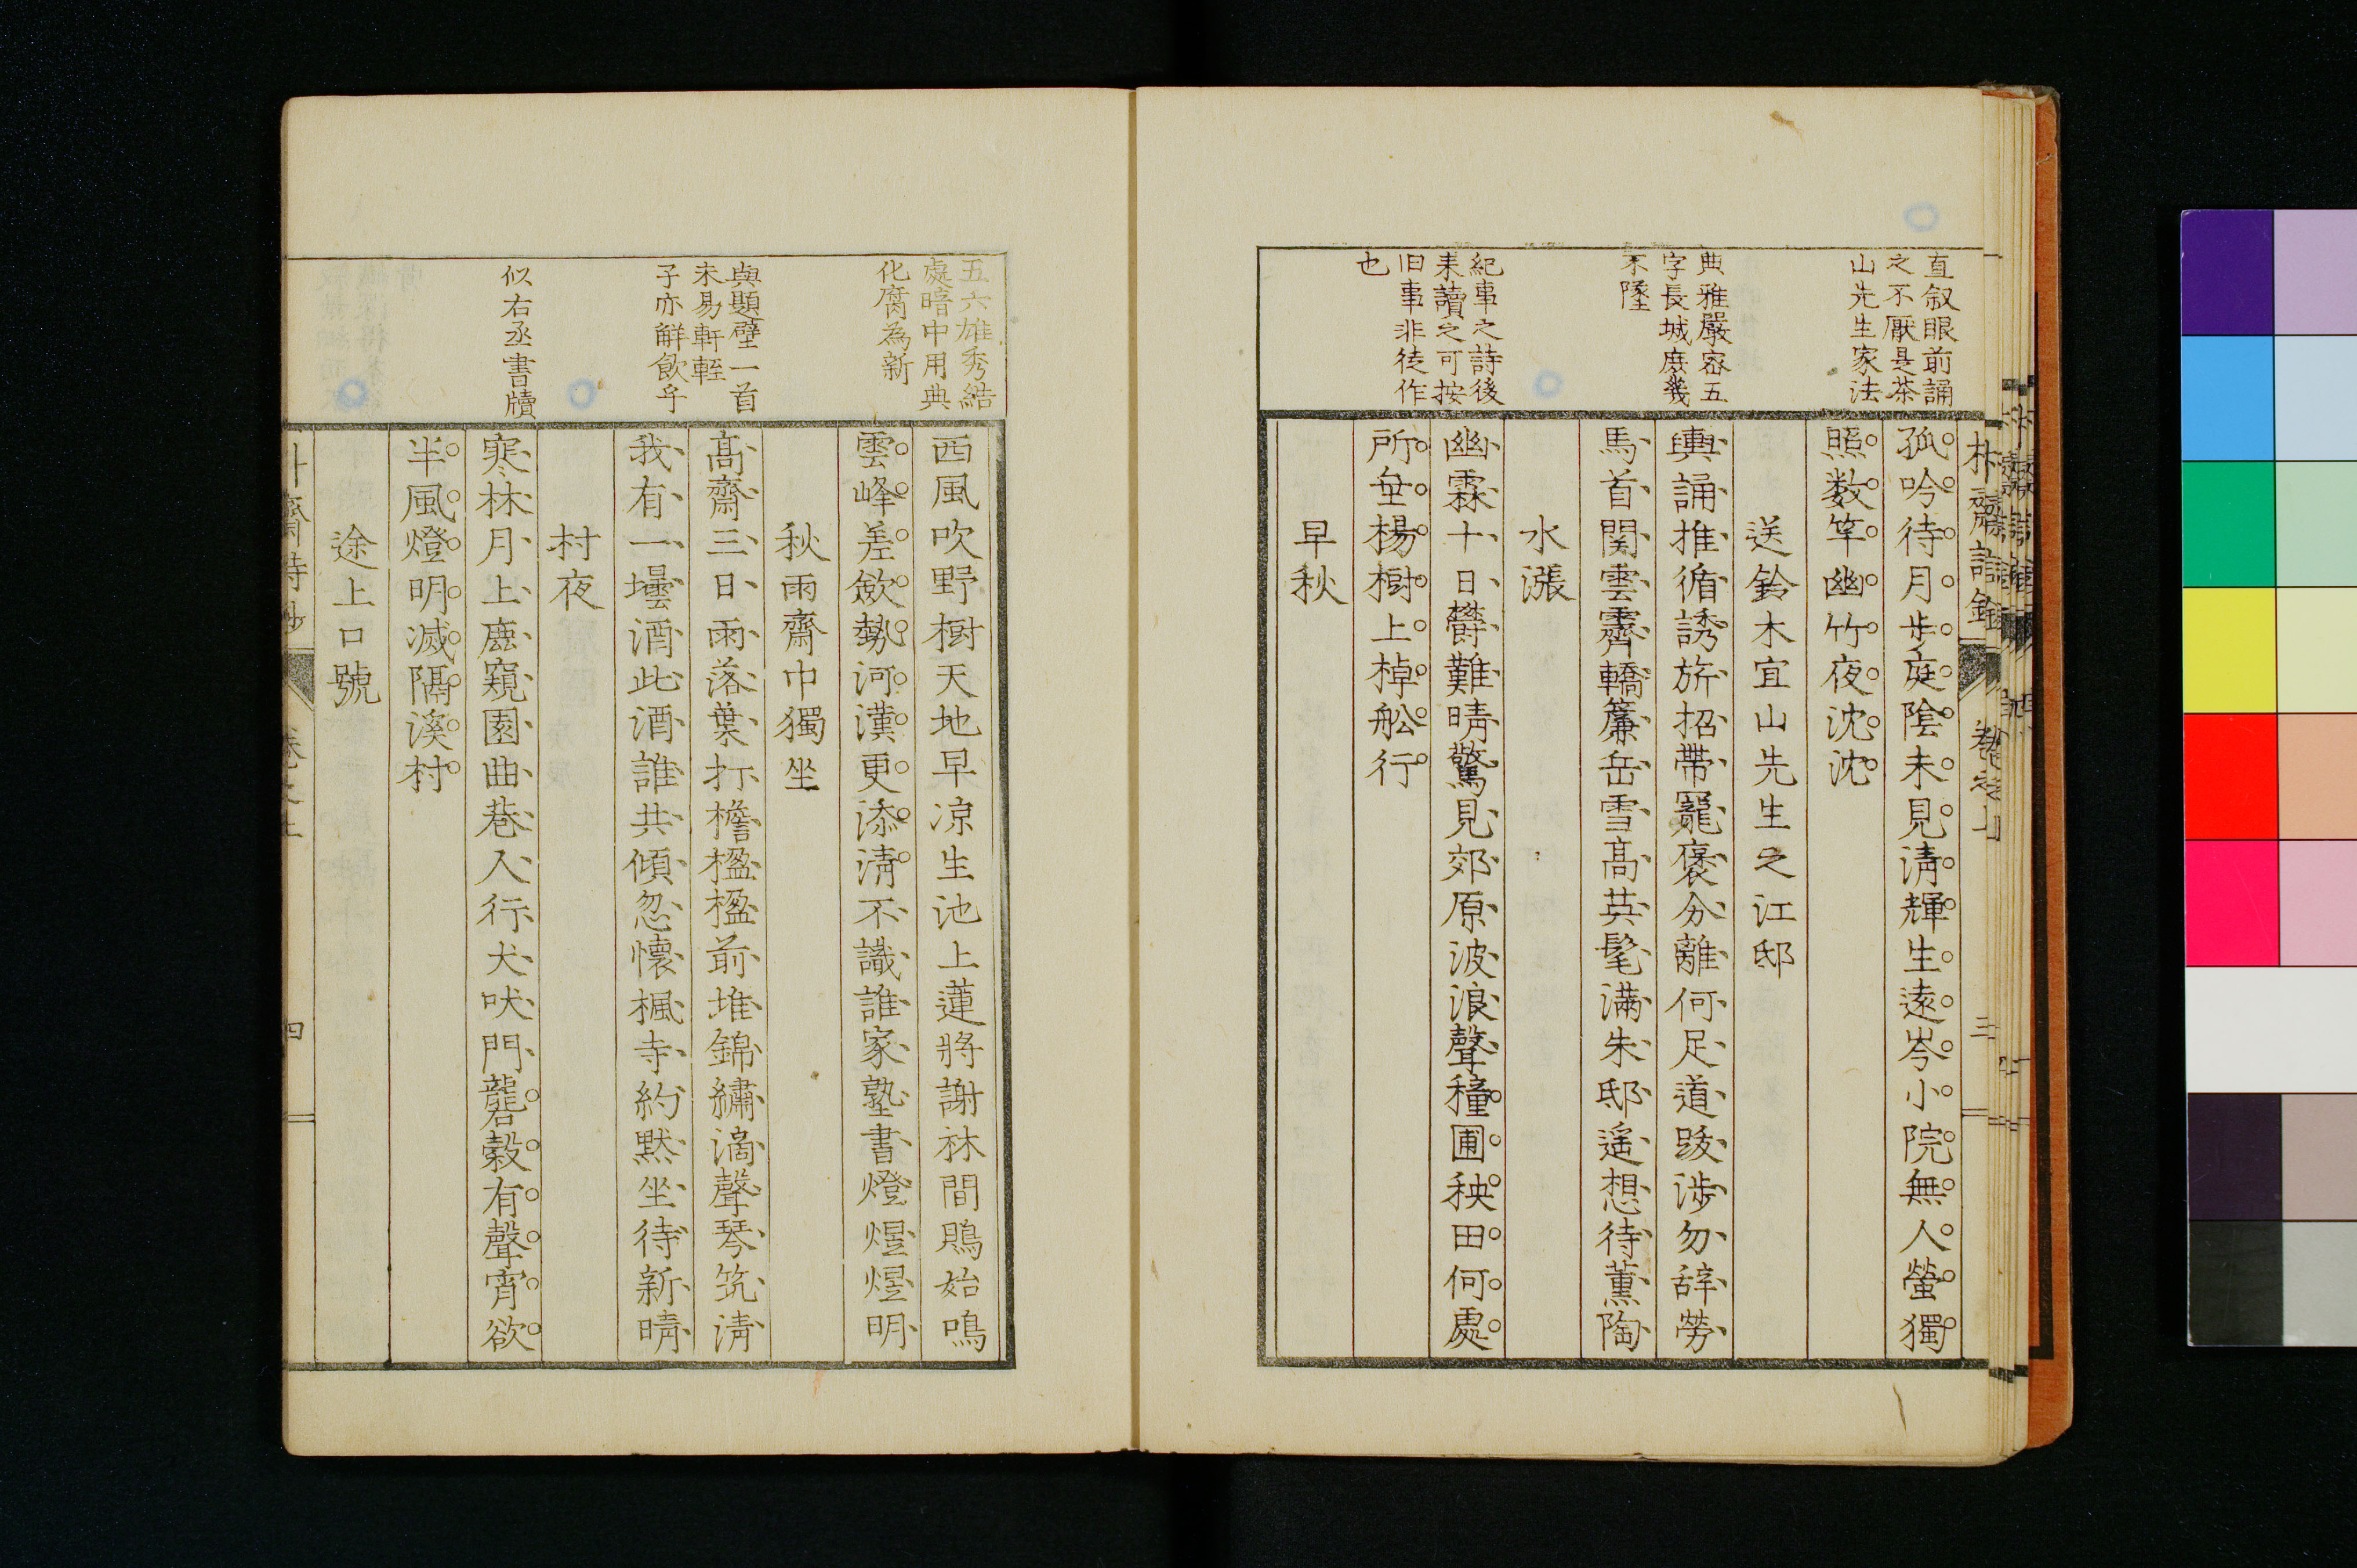 直叙眼前誦
之不厭是茶
山先生家法
典雅嚴密五
字長城庶幾
不墜
紀事之詩後
来讀之可按
旧事非徒作
也
孤吟待月步庭陰未見清輝生遠岑小院無人螢獨
照数竿幽竹夜沈沈
送鈴木宜山先生之江邸
輿誦推循誘旂招帶寵褒分離何足道跋渉勿辞勞
馬首関雲霽轎簾岳雪高英髦満朱邸遙想待薫陶
水漲
幽霖十日欝難晴驚見郊原波浪聲穜圃秧田何處
所垂楊樹上棹舩行
早秋
五六雄秀結
處暗中用典
化腐為新
與題壁一首
未易軒輊
子亦解飲乎
似右丞書牘
西風吹野樹天地早凉生池上蓮將謝林間鵙始鳴
雲峰差斂勢河漢更添清不識誰家塾書燈煜煜明
秋雨齋中獨坐
高齋三日雨落葉打檐楹楹前堆錦繡滴聲琴筑清
我有一壜酒此酒誰共傾忽懷楓寺約黙坐待新晴
村夜
寒林月上鹿窺園曲巷人行犬吠門礱穀有聲宵欲
半風燈明滅隔溪村
途上口號
四